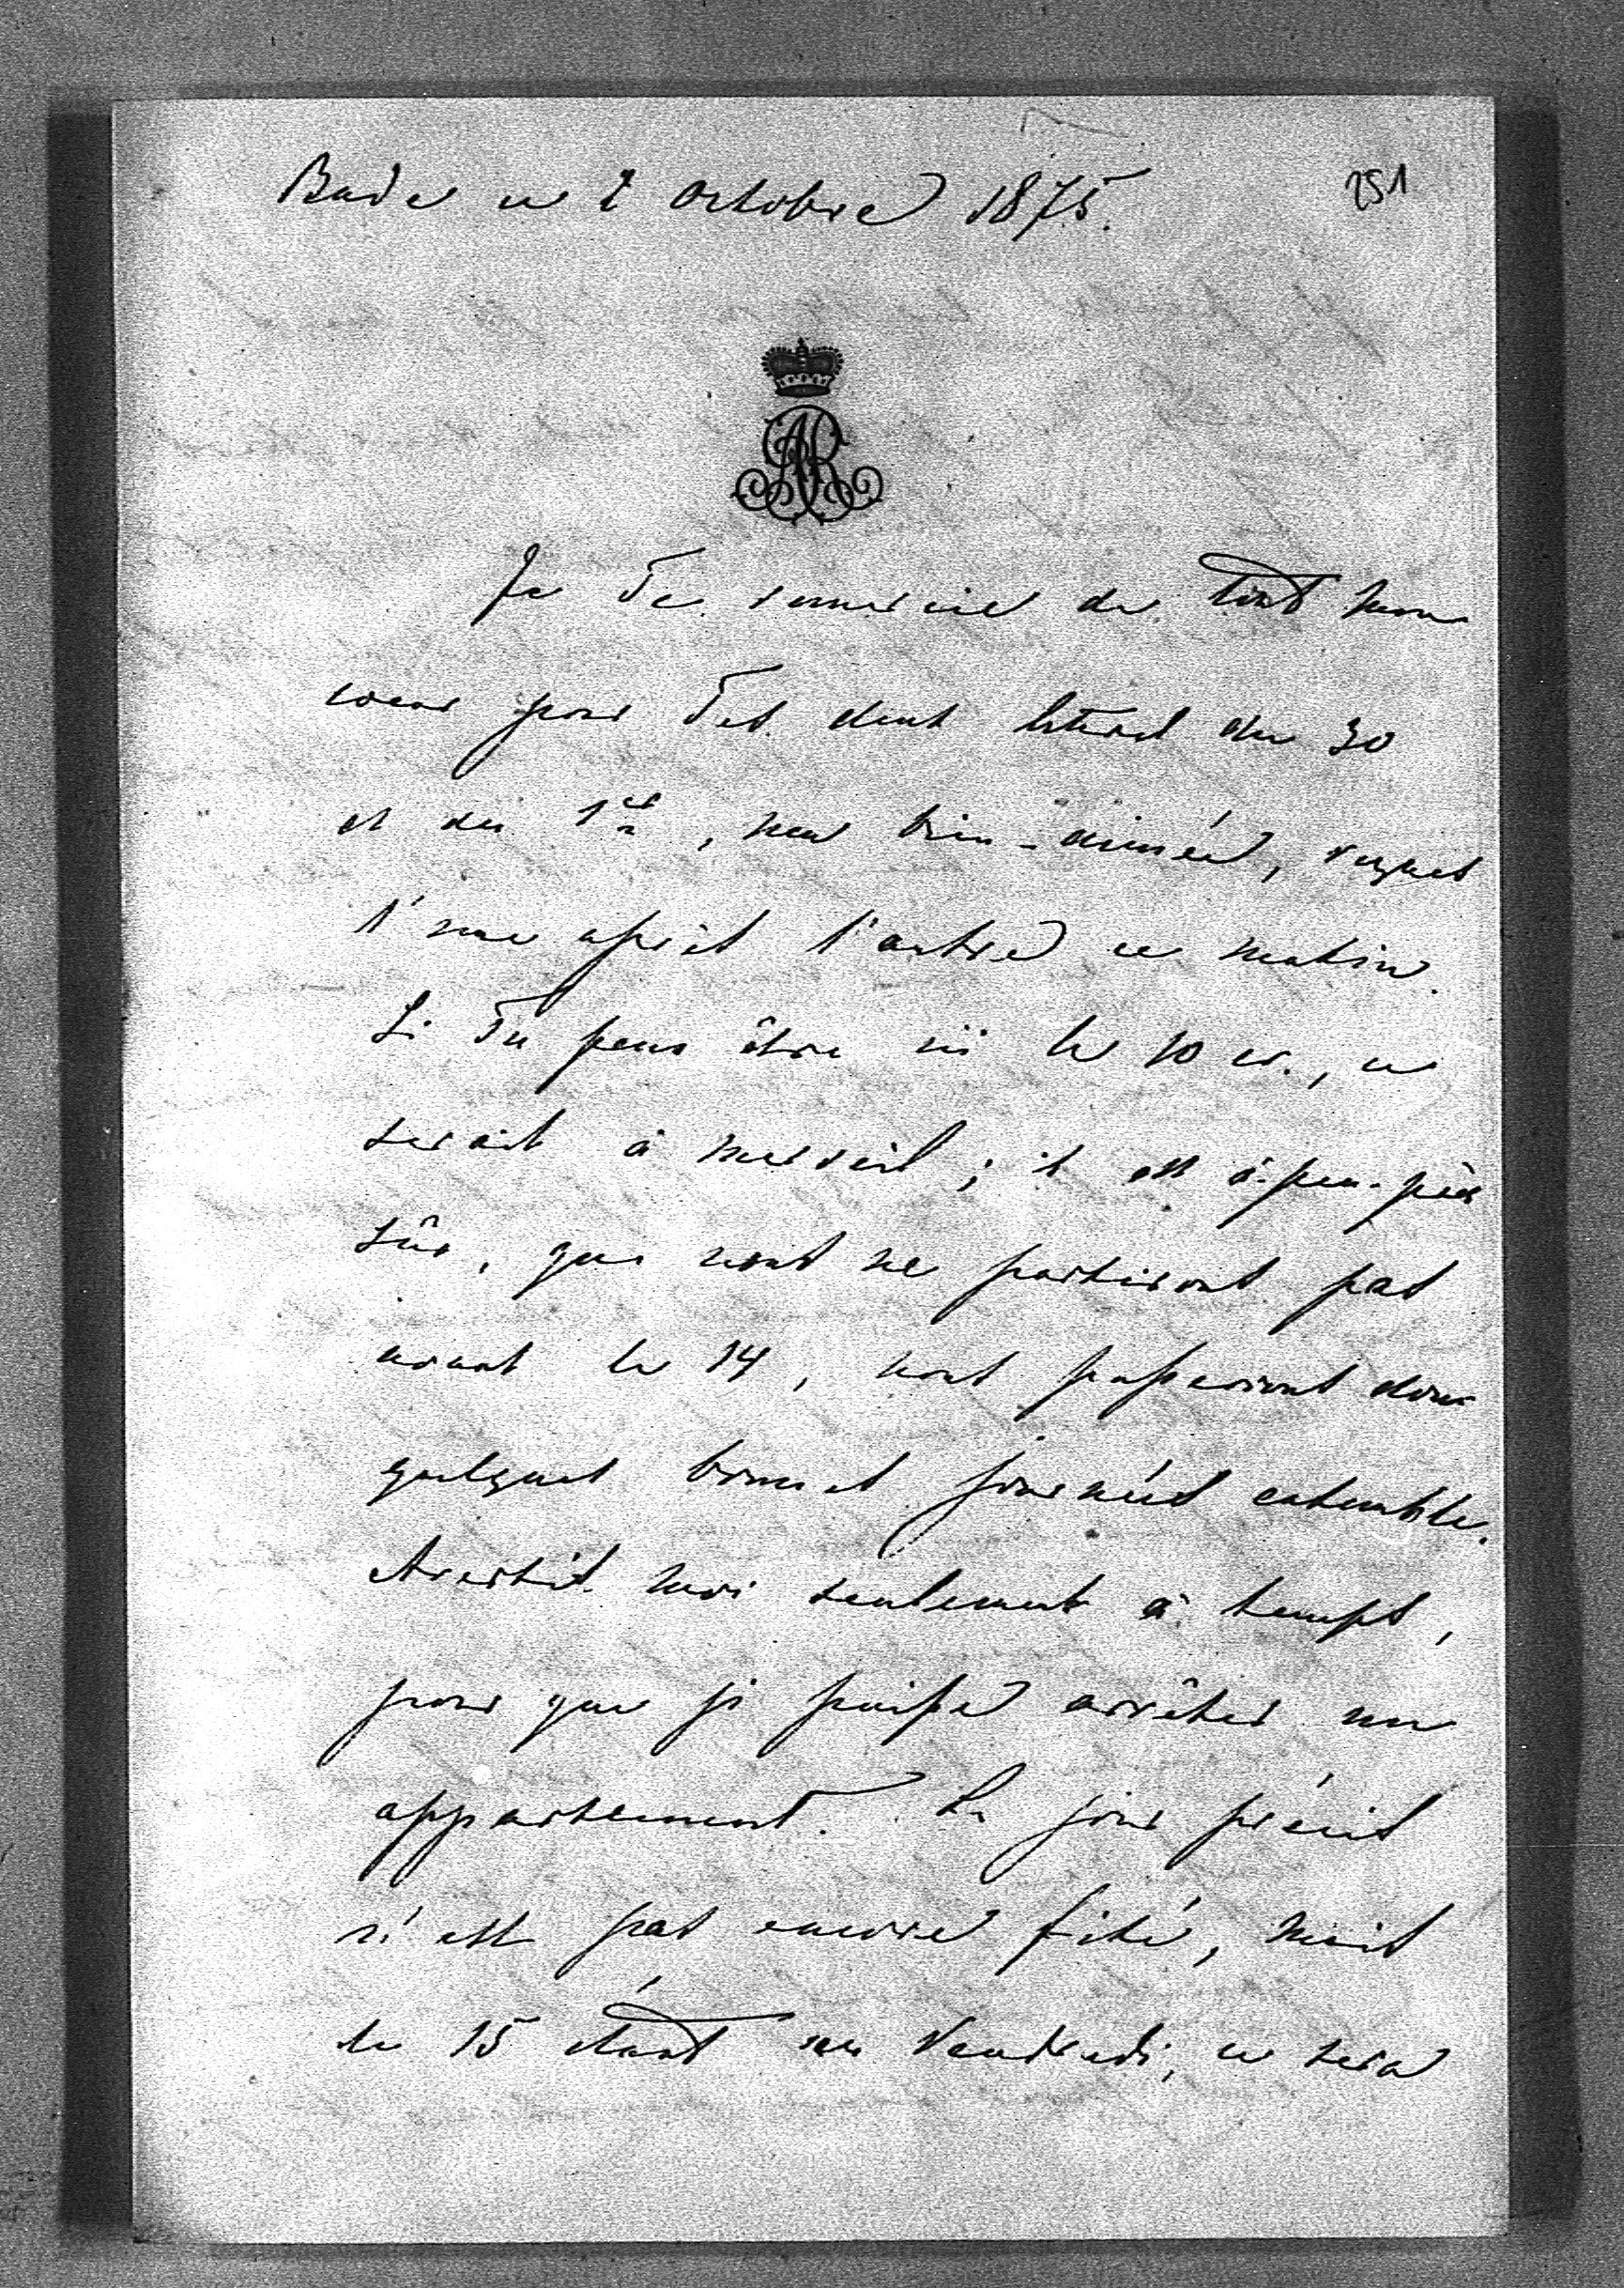 Bade ce 2 Octobre 1875.
251
AR
Je Te remercie de tout mon
coeur pour Tes deux lettres du 30
et du 1er, ma bien-aimée, reçues
l'une après l'autre ce matin.
Si Tu peux être ici le 10 cr., ce
serait à merveil; il est à-peu-près
sûr, que nous ne partirons pas
avant le 14, nous passerions donc
quelques bonnes journées ensemble.
Avertis moi seulement à temps,
pour que je puisse arrêter un
appartement. Le jour précis
n'est pas encore fixé, mais
le 15 étant un Vendredi, ce sera